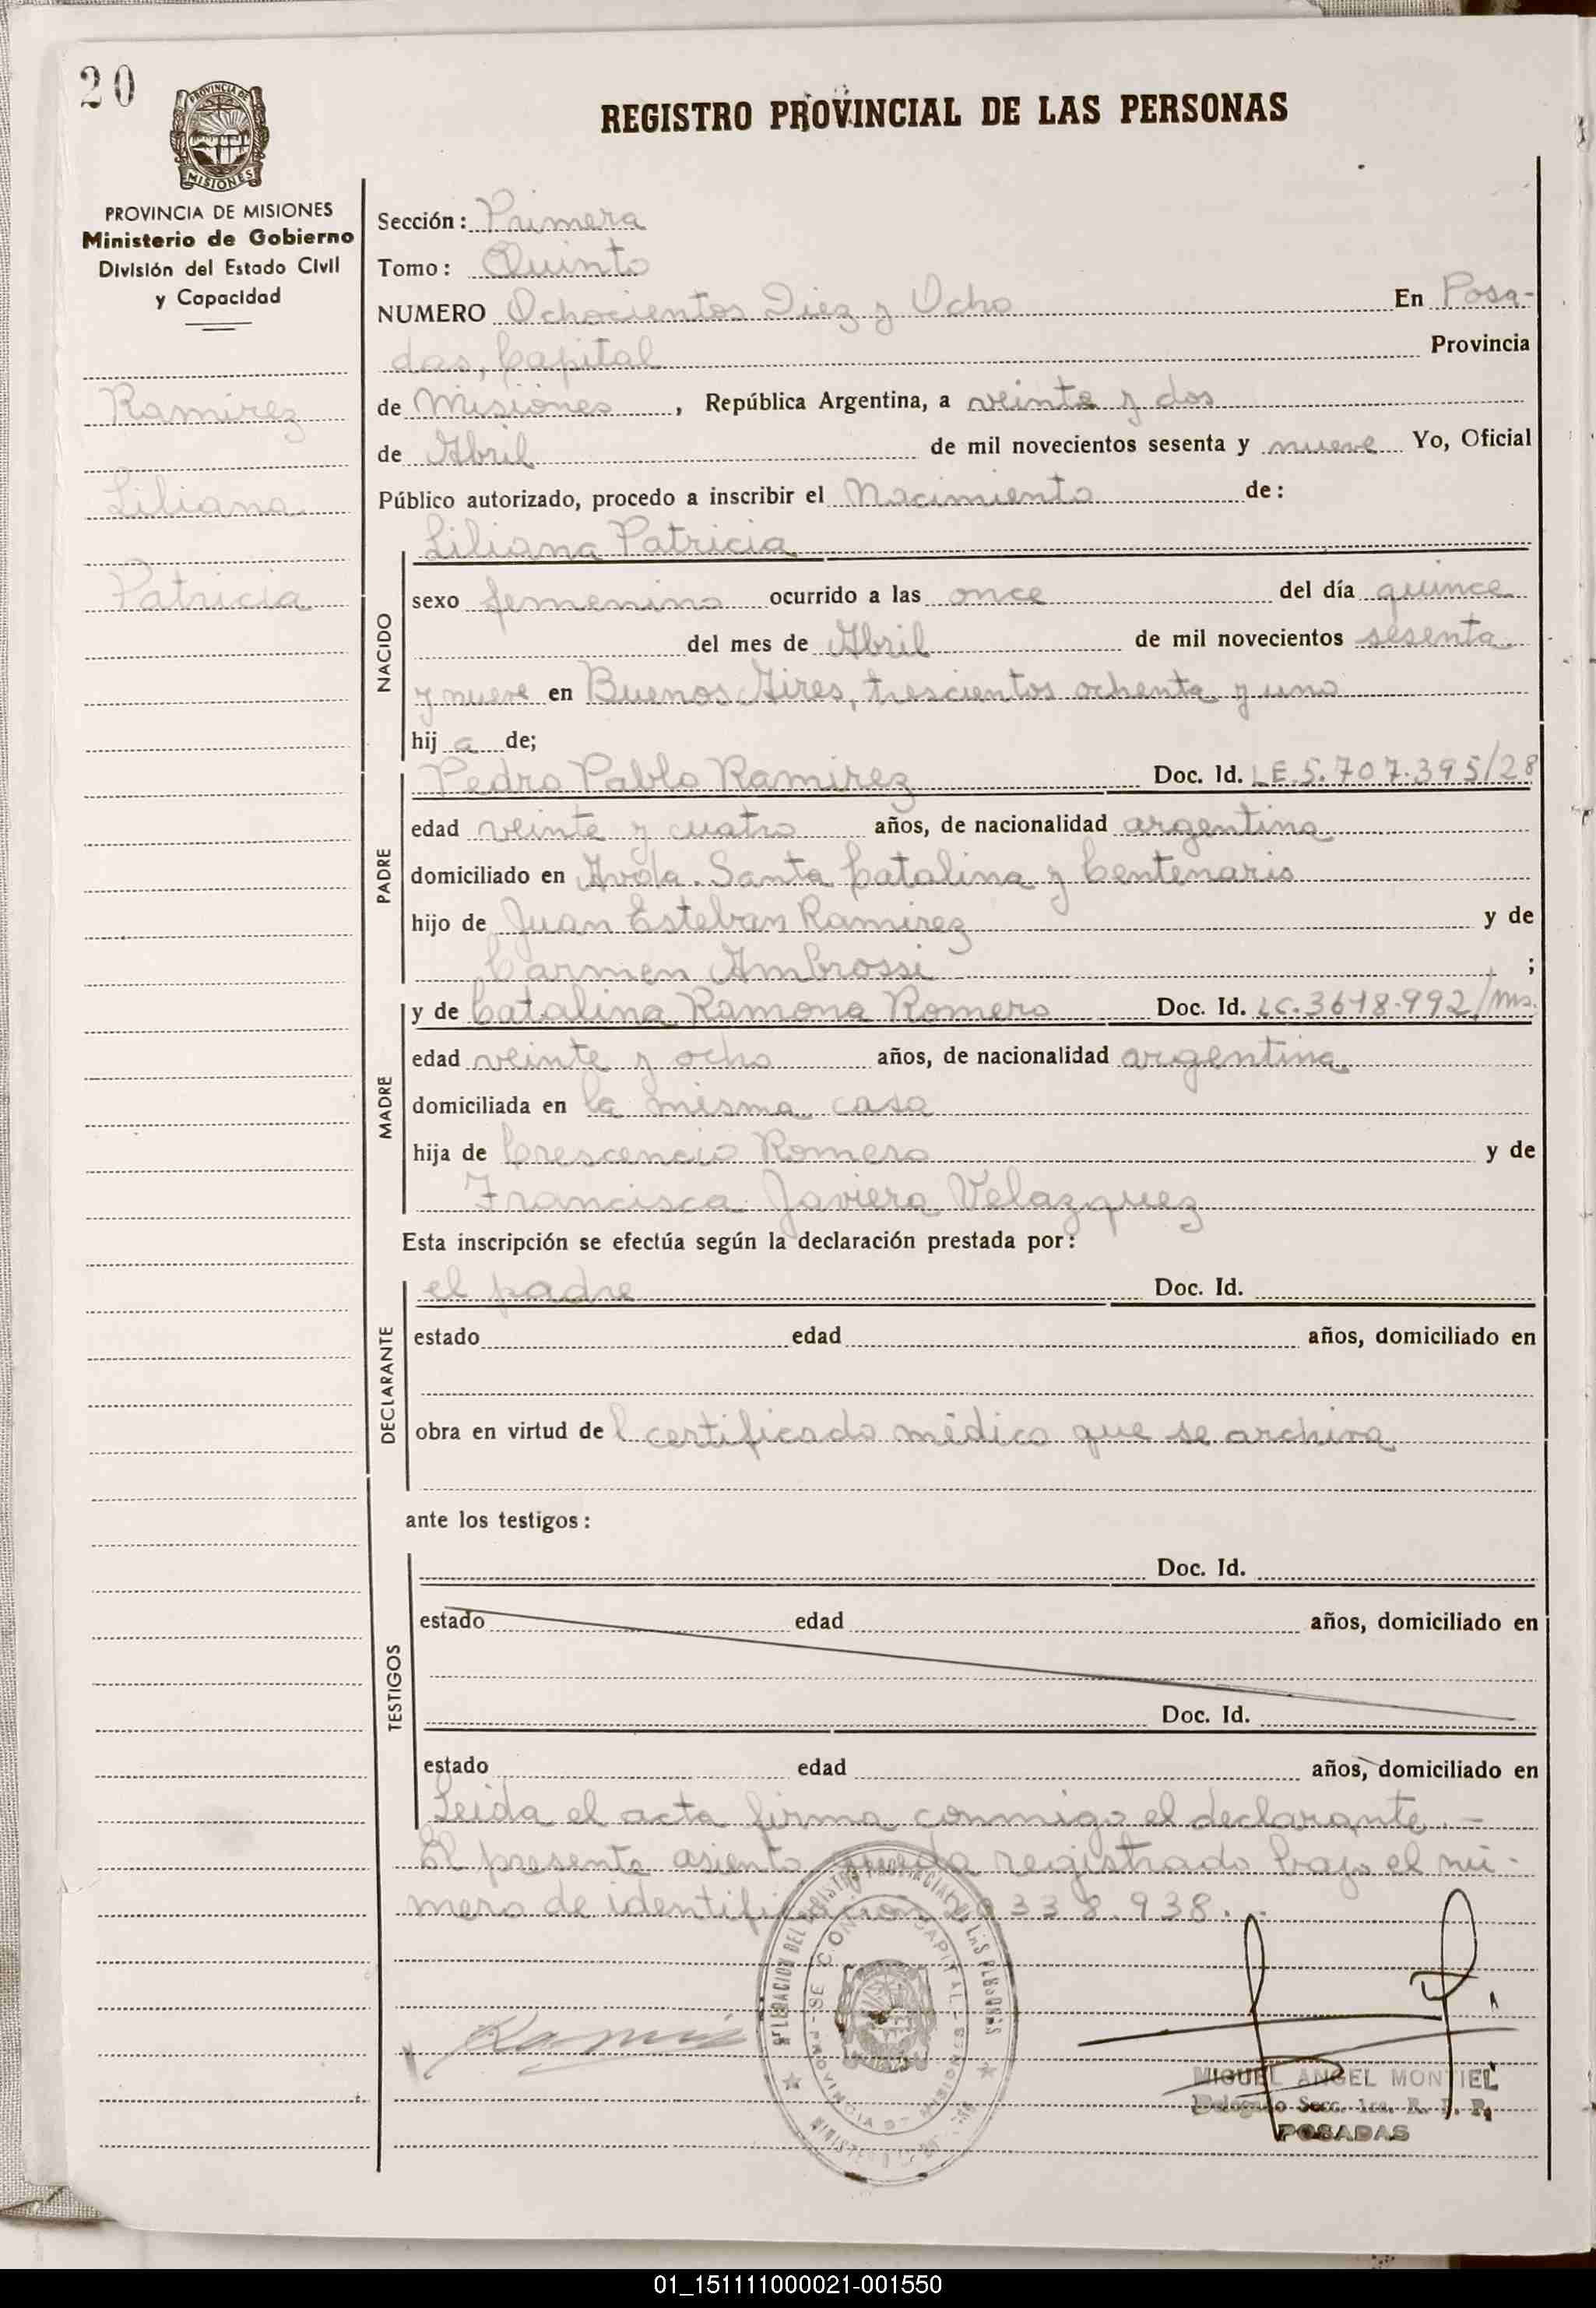 20
PROVINCIA DE
MISIONES
REGISTRO PROVINCIAL DE LAS PERSONAS
PROVINCIA DE MISIONES
Ministerio de Gobierno
División del Estado Civil
y Capacidad
Ramirez
Liliana
Patricia
Sección: Primera
Tomo: Quinto
NUMERO Ochocientos Diez y Ocho En Posa-
das, Capital Provincia
de Misiones, República Argentina, a veinte y dos
de Abril de mil novecientos sesenta y nueve Yo, Oficial
Público autorizado, procedo a inscribir el Nacimiento de:
NACIDO
Liliana Patricia
sexo femenino ocurrido a las once del día quince
del mes de Abril de mil novecientos sesenta
y nueve en Buenos Aires, trescientos ochenta y uno
hij a de;
PADRE
Pedro Pablo Ramirez Doc. Id. LE.5.707.395/28
edad veinte y cuatro años, de nacionalidad argentina
domiciliado en Avda. Santa Catalina y Centenario
hijo de Juan Esteban Ramirez y de
Carmen Ambrossi ;
MADRE
y de Catalina Ramona Romero Doc. Id. LC.3618.992/Ms.
edad veinte y ocho años, de nacionalidad argentina
domiciliada en la misma casa
hija de Crescencio Romero y de
Francisca Javiera Velazquez
Esta inscripción se efectúa según la declaración prestada por:
DECLARANTE
el padre Doc. Id.
estado edad años, domiciliado en
obra en virtud de l certificado médico que se archiva
ante los testigos:
TESTIGOS
Doc. Id.
estado edad años, domiciliado en
Doc. Id.
estado edad años, domiciliado en
Leida el acta firma conmigo el declarante.-
El presente asiento queda registrado bajo el nú-
mero de identificación 20338.938.
Ramirez
DELEGACION DEL REGISTRO PROVINCIAL DE LAS PERSONAS
CAPITAL
PROVINCIA DE MISIONES
MIGUEL ANGEL MONTIEL
Delegado Secc. 1ra. R. P. P.
POSADAS
01_151111000021-001550